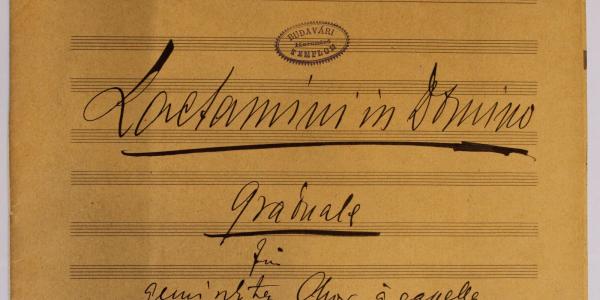 BUDAVÁRI
TEMPLOM
Laetamini in Domino
Graduale
für
gemischten Chor à capella